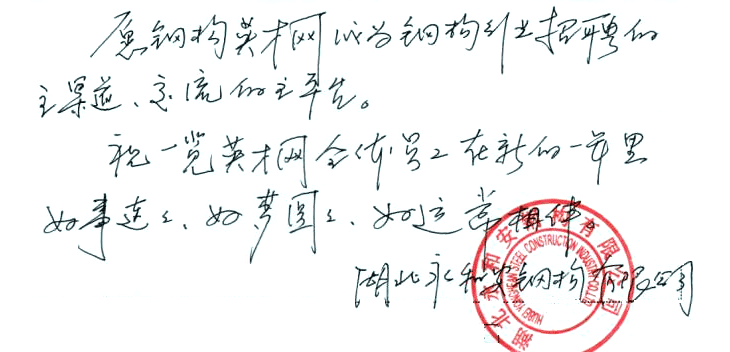 愿钢构英才网成为钢构行业招聘的
主渠道、交流的主平台。
祝一览英才网全体员工在新的一年里
好事连连、好梦圆圆、好运常相伴。
湖北永和安钢构有限公司
湖北永和安钢构有限公司
HUBEI YONGHEAN STEEL CONSTRUCTION INDUSTRY CO.,LTD